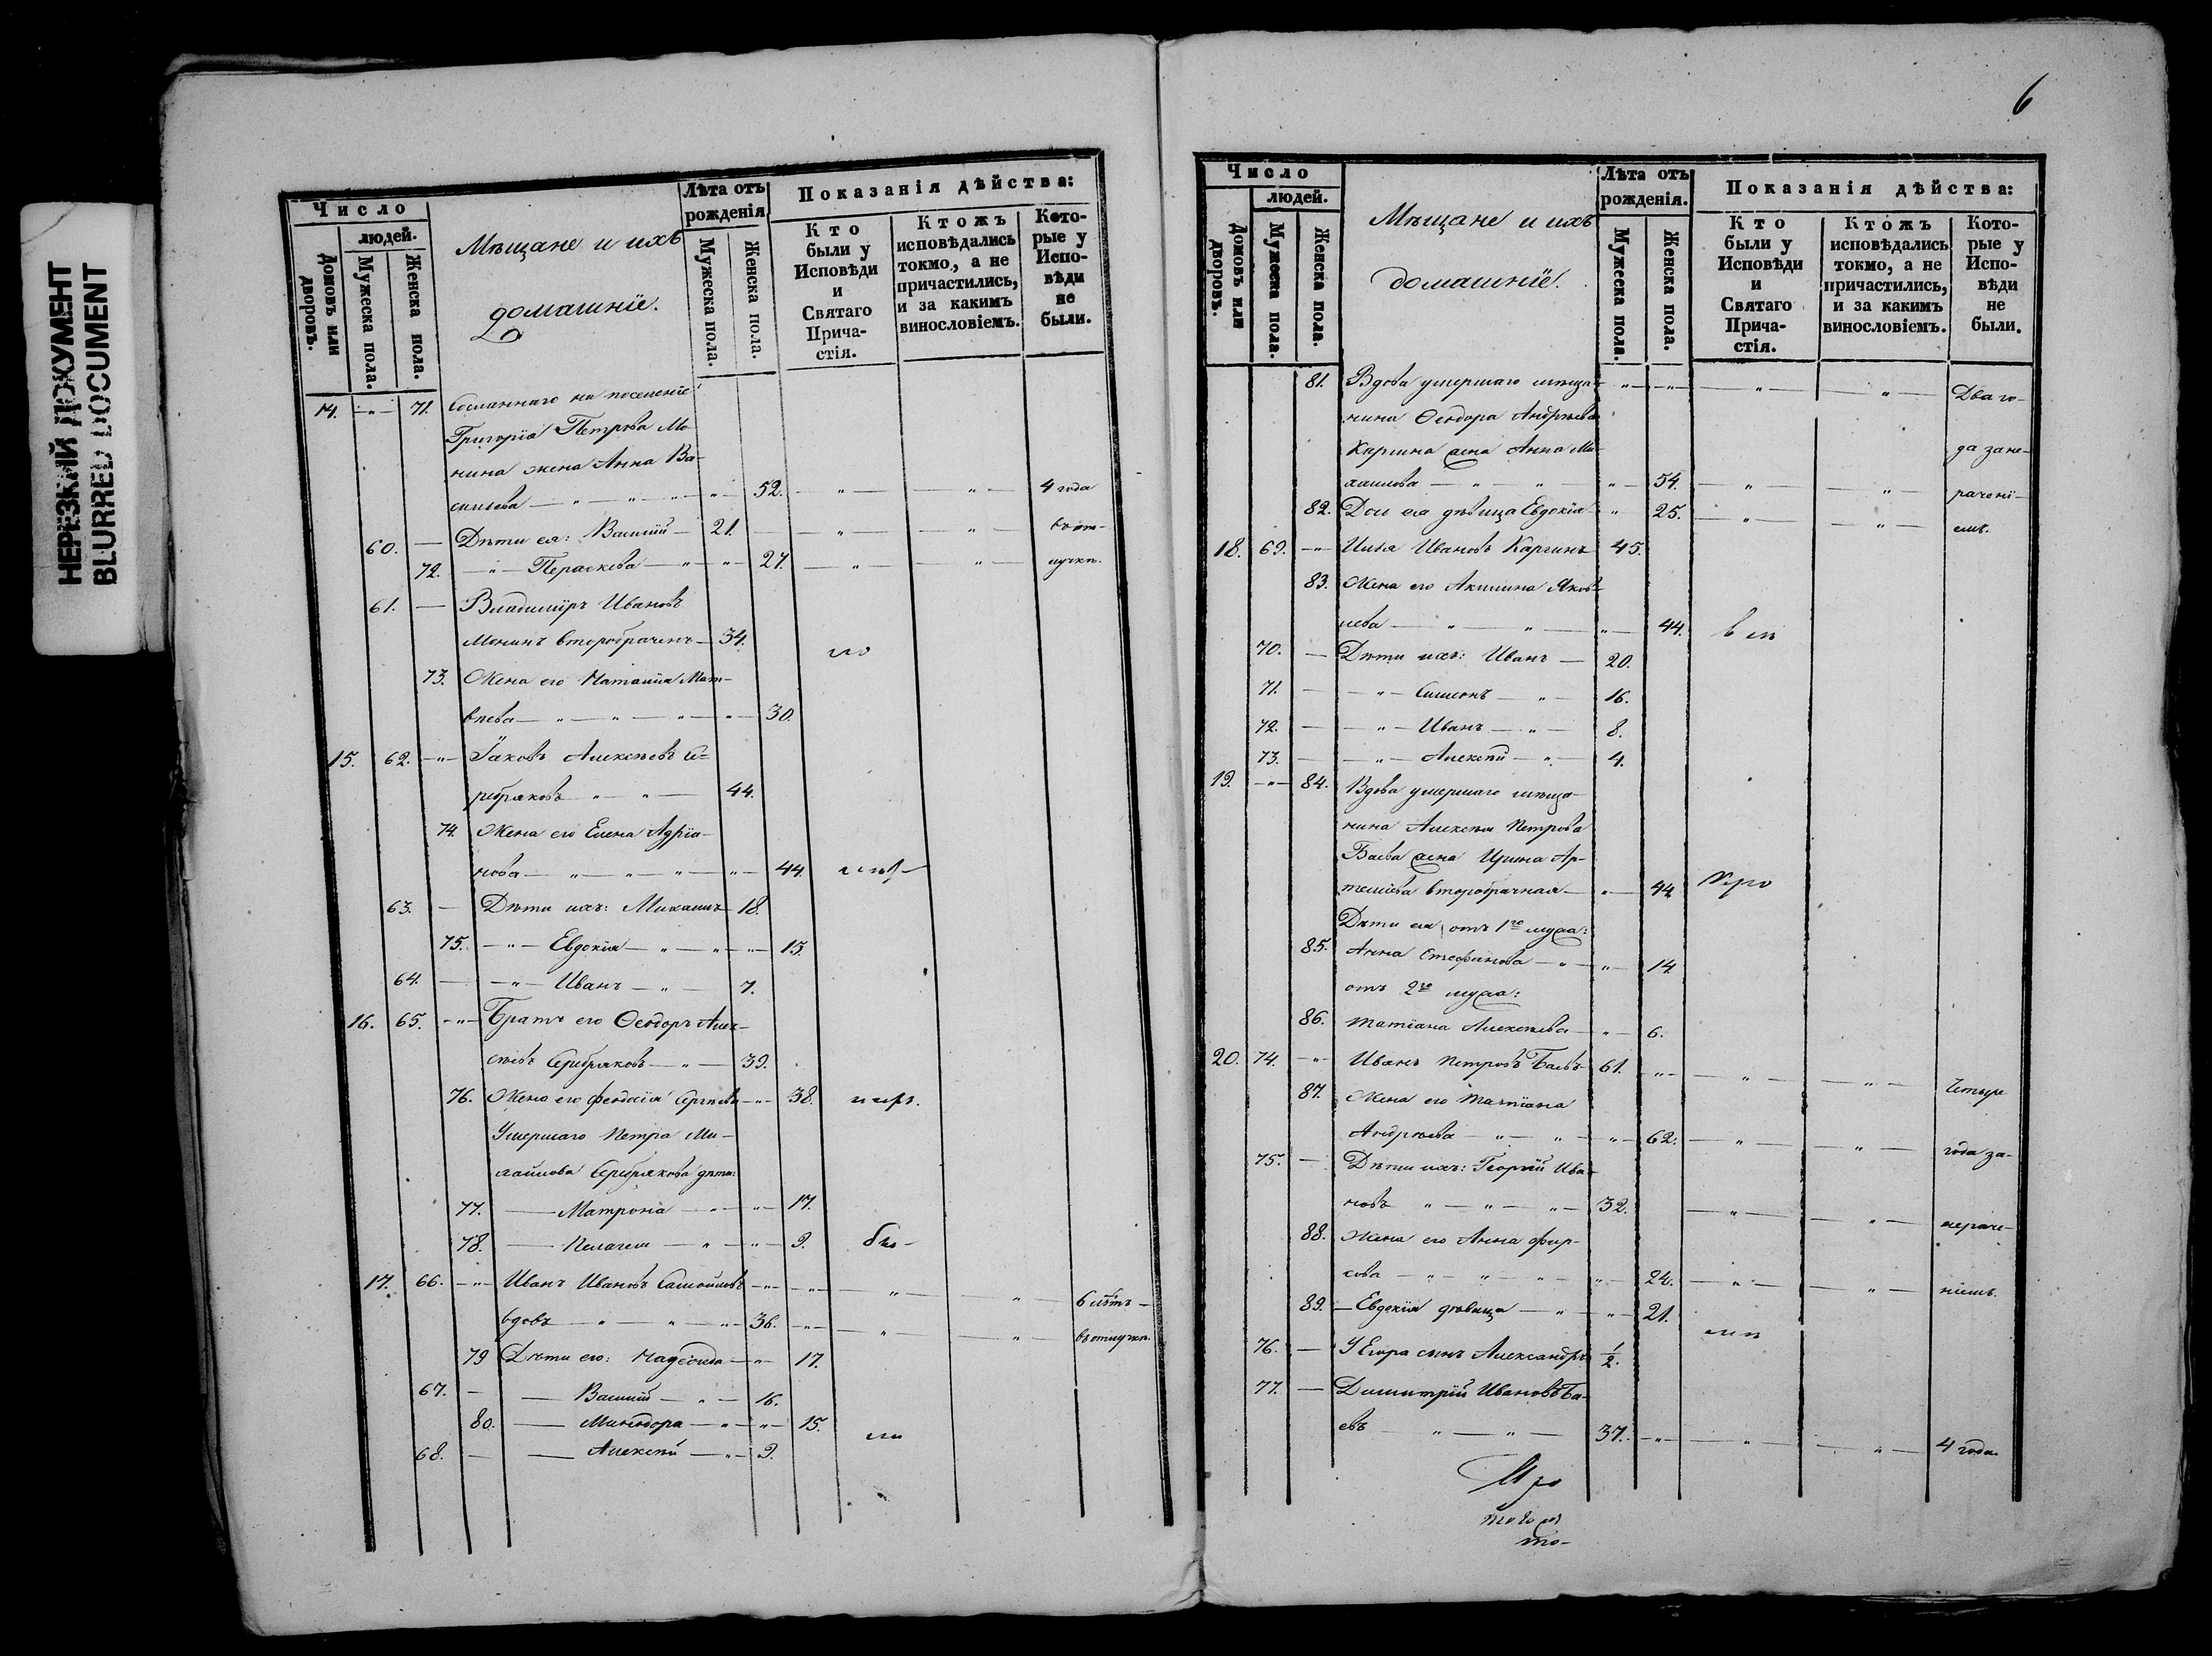 НЕРЕЗКИЙ ДОКУМЕНТ
BLURRED DOCUMENT
Число
людей.
Домовъ или дворовъ.
Мужеска пола.
Женска пола.
Мѣщане и ихъ
домашніе.
Лѣта отъ
рожденія
Мужеска пола.
Женска пола.
Показанія дѣйства:
Кто
были у
Исповѣди
и
Святаго
Прича-
стія.
Ктожъ
исповѣдались
токмо, а не
причастились,
и за какимъ
винословіемъ.
Кото-
рые у
Испо-
вѣди
не
были.
14. -"- 71. Сосланнаго на поселеніе
Григорія Петрова Мо-
нина жена Анна Ва-
сильева — " — " — " — " — 52. — " — — " — 4 года
60. — Дѣти ея: Василій — 21. — — " — " въ от-
72. — " — Параскева — " — " — 27. — " — " лучкѣ.
61. — Владиміръ Ивановъ
Монинъ второбраченъ — 34.
73. Жена его Наталія Мат-
вѣева — " — " — " — " — 30.
15. 62. -"- Іаковъ Алексѣевъ Се-
ребряковъ " — " — 44.
74. Жена его Елена Адріа-
нова — " — " — " — " — 44.
63. — Дѣти ихъ: Михаилъ 18.
75. — " — Евдокія — " — " — " — 15.
64. — — " — Иванъ — " — 7.
16. 65. -"- Братъ его Ѳеодоръ Алек-
сѣевъ Серебряковъ — " — 39.
76. Жена его Феодосія Сергѣева -"- 38.
Умершаго Петра Ми-
хайлова Серебрякова дѣти:
77. — Матрона — " — " — 17.
78. — Пелагея — " — " — 9.
17. 66. -"- Иванъ Ивановъ Самойловъ -"- -"- " " 6 лѣтъ —
вдовъ — " — " — " — 36. -"- " " въ отлучкѣ.
79 Дѣти его: Надежда — " — 17.
67. — — Василій — " — 16.
80. — Минодора — " — " — 15.
68. — — Алексѣй — " — 9.
6
Число
людей.
Домовъ или дворовъ.
Мужеска пола.
Женска пола.
Мѣщане и ихъ
домашніе.
Лѣта отъ
рожденія.
Мужеска пола.
Женска пола.
Показанія дѣйства:
Кто
были у
Исповѣди
и
Святаго
Прича-
стія.
Ктожъ
исповѣдались
токмо, а не
причастились,
и за какимъ
винословіемъ.
Кото-
рые у
Испо-
вѣди
не
были.
81. Вдова умершаго мѣща- -"- -"- — " — — " — Два го-
нина Ѳеодора Андрѣева
Каргина жена Анна Ми- да за не-
хаилова — " — " — " — 54. — " — — " — рачені-
82. Дочь ея дѣвица Евдокія — " 25. — " — — " — емъ.
18. 69. -"- Илья Ивановъ Каргинъ 45.
83. Жена его Акилина Яков-
лева — " — " — " — 44.
70. — Дѣти ихъ: Иванъ — 20.
71. — — " — Симеонъ — " — 16.
72. — — " — Иванъ — " — 8.
73. — — " — Алексѣй — " — 4.
19. -"- 84. Вдова умершаго мѣща-
нина Алексѣя Петрова
Баева жена Ирина Ар-
темьева второбрачная — " — 44.
Дѣти ея отъ 1го мужа:
85. Анна Стефанова — " — " — 14.
отъ 2го мужа:
86. Татіана Алексѣева — " — 6.
20. 74. -"- Иванъ Петровъ Баевъ 61. -"- — " — — " — Четыре
87. Жена его Татіана
Андрѣева — " — " — " — 62. — " — — " — года за-
75. — Дѣти ихъ: Георгій Ива-
новъ " — " — " — 32. — " — — " — нераче-
88. Жена его Анна Фир-
сова — " — " — " — " — 24. — " — — " — ніемъ.
89. — Евдокія дѣвица — " — " — 21.
76. — У Егора сынъ Александръ 1/2.
77. — Димитрій Ивановъ Ба-
евъ — " — " — 37. -"- — " — — " — 4 года.